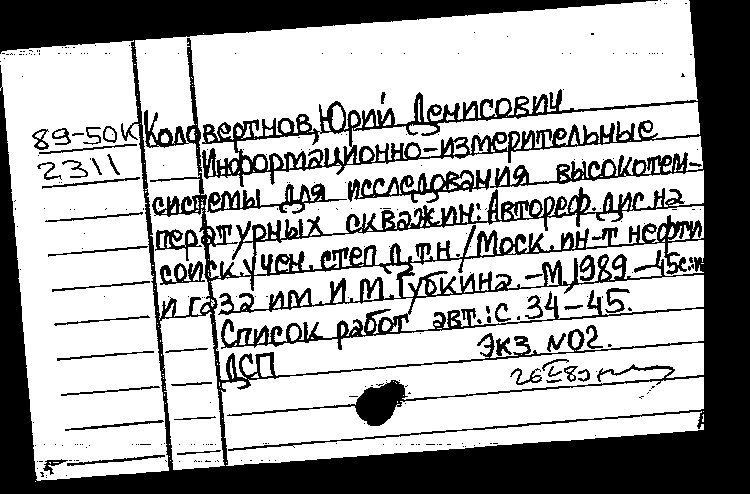 89-50К Коловертнов, Юрий Демисович.
2311 Информационно-измерительные
системы для исследования высокотем-
пературных скважин: Автореф. дис. на
соиск. учен. степ. д.т.н. / Моск. ин-т нефти
и газа им. И.М. Губкина. -М., 1989. -45с.: ил
Список работ авт.: с. 34-45.
ДСП Экз. №02.